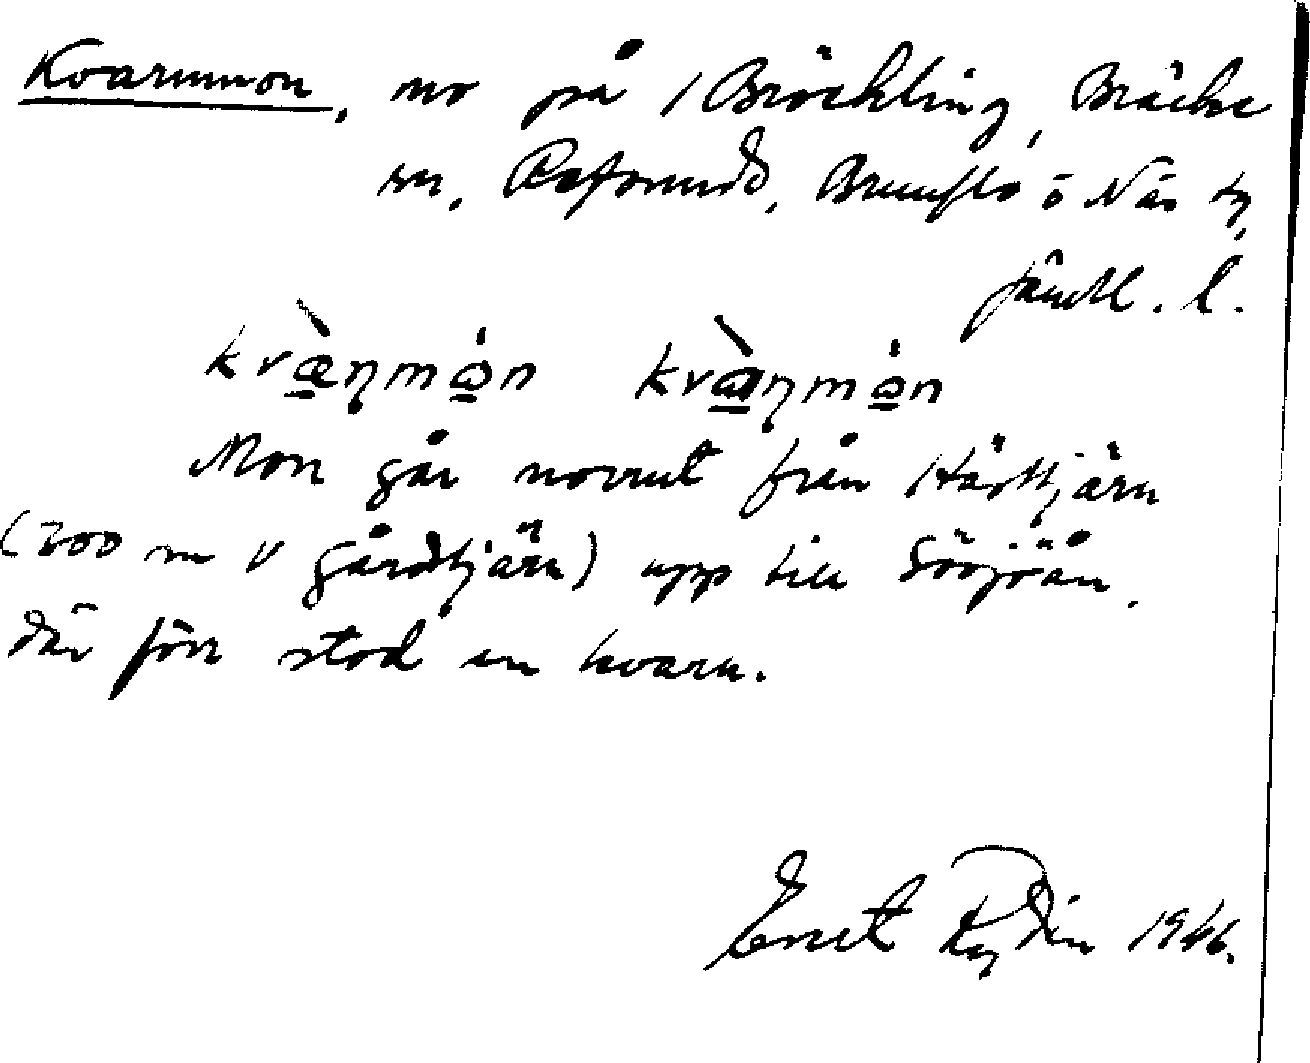 Kvarnmon, mo på 1 Bräckling, Bräcke
sn, Refsunds, Brunflo o Näs tg,
Jämtl. l.
kvæ̀ŋmòn kvàŋmòn
Mon går norrut från Hårtjärn
(200 m V Gårdtjärn) upp till Sörjöån,
där förr stod en kvarn.
Ernst Rydin 1946.